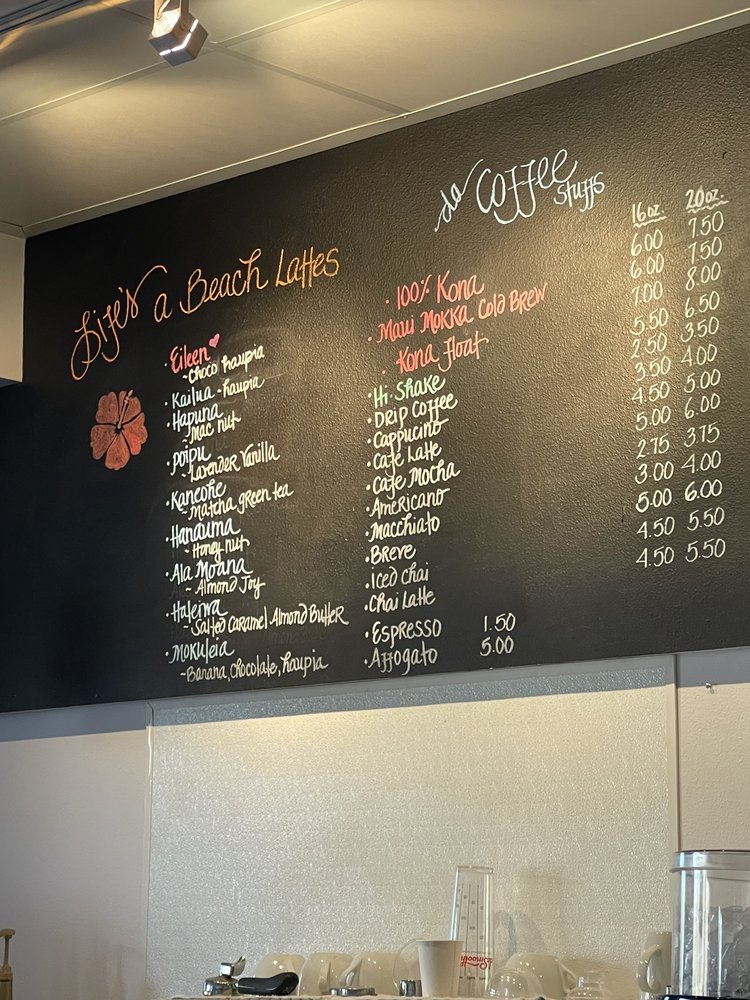 Life's a Beach Lattes
· Eileen
~ Choco haupia
· Kailua - haupia
· Hapuna
~ Mac nut
· Poipu
~ Lavender Vanilla
· Kaneohe
~ Matcha green tea
· Hanauma
~ Honey nut
· Ala Moana
~ Almond Joy
· Haleiwa
~ Salted Caramel Almond Butter
· Mokuleia
~ Banana, Chocolate, haupia
da Coffee Stuffs
16oz. 20oz.
· 100% Kona 6.00 7.50
· Maui Mokka Cold Brew 6.00 7.50
· Kona float 7.00 8.00
· Hi·Shake 5.50 6.50
· Drip Coffee 2.50 3.50
· Cappucino 3.50 4.00
· Cafe Latte 4.50 5.00
· Cafe Mocha 5.00 6.00
· Americano 2.75 3.75
· Macchiato 3.00 4.00
· Breve 5.00 6.00
· Iced chai 4.50 5.50
· Chai Latte 4.50 5.50
· Espresso 1.50
· Affogato 5.00